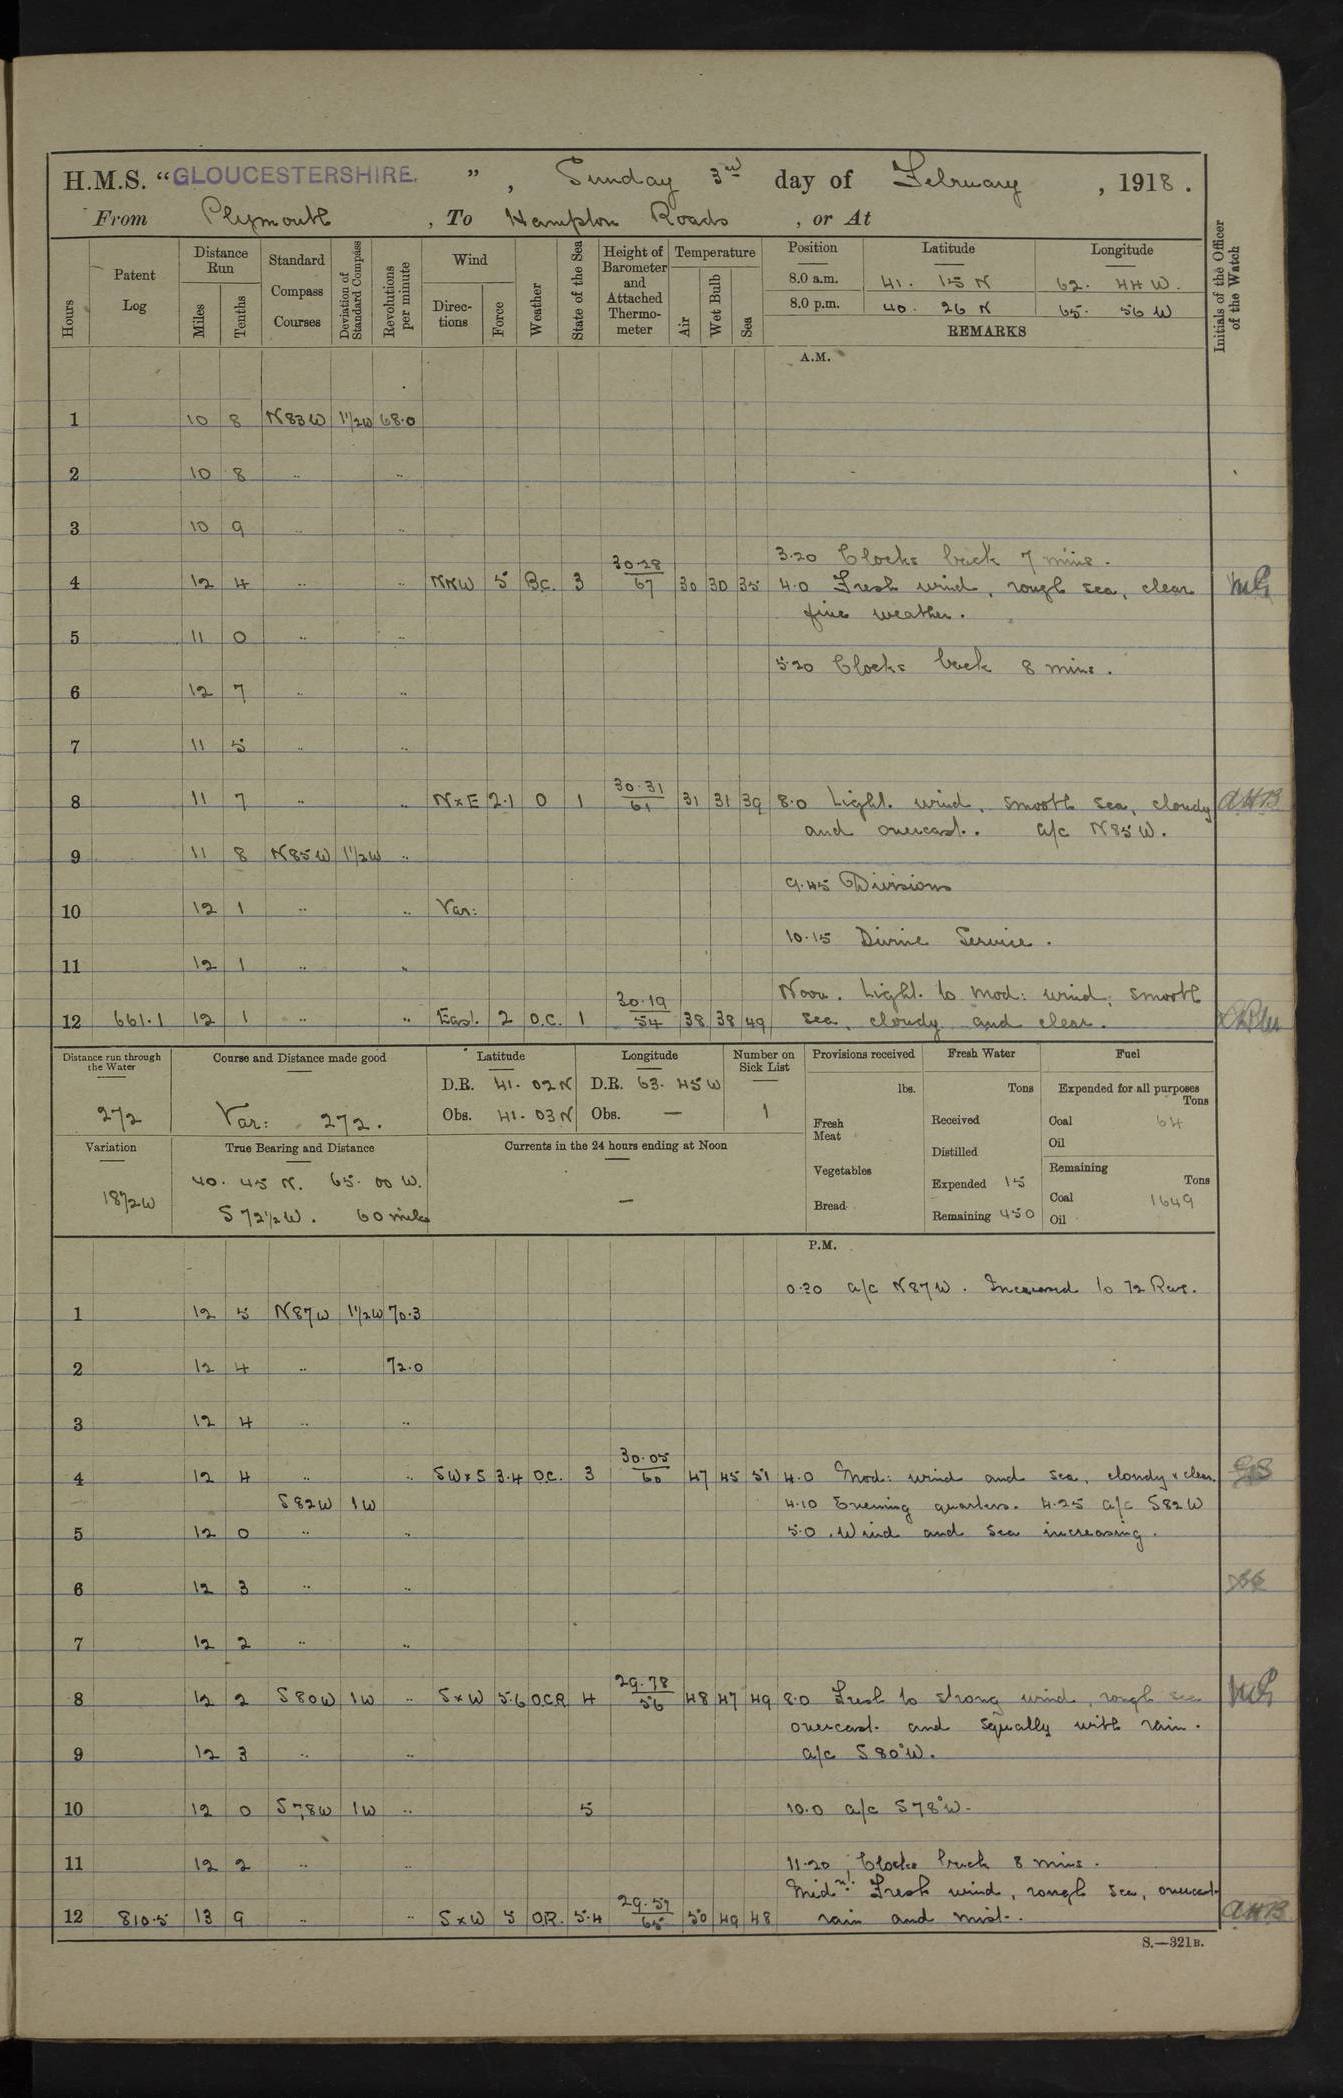 H.M.S. "GLOUCESTERSHIRE." , Sunday 3rd day of February , 1918.
From Plymouth , To Hampton Roads , or At
Hours Patent Log Distance Run Miles Tenths Standard Compass Courses Deviation of Standard Compass Revolutions per minute Wind Directions Force Weather State of the Sea Height of Barometer and Attached Thermometer Temperature Air Wet Bulb Sea Position Latitude Longitude Initials of the Officer of the Watch
8.0 a.m. 41. 15 N 62. 44 W.
8.0 p.m. 40. 26 N 65. 56 W
REMARKS
A.M.
1 10 8 N83W 1½W 68.0
2 10 8 .. ..
3 10 9 .. ..
3.20 Clocks back 7 mins.
4 12 4 .. .. NNW 5 B.C. 3 30.28/67 30 30 35 4.0 Fresh wind, rough sea, clear
fine weather.
5 11 0 .. ..
5.20 Clocks back 8 mins.
6 12 7 .. ..
7 11 5 .. ..
8 11 7 .. .. NxE 2.1 O 1 30.31/61 31 31 39 8.0 Light wind, smooth sea, cloudy AHB
and overcast. a/c N85W.
9 11 8 N85W 1½W ..
9.45 Divisions
10 12 1 .. .. Var:
10.15 Divine Service.
11 12 1 .. ..
Noon. Light to Mod: wind, smooth
12 661.1 12 1 .. .. East. 2 O.C. 1 30.19/54 38 38 49 sea, cloudy and clear.
Distance run through the Water Course and Distance made good Latitude Longitude Number on Sick List Provisions received Fresh Water Fuel
272 Var: 272.
D.R. 41. 02N D.R. 63. 45W
Obs. 41. 03N Obs. — 1
lbs. Tons Expended for all purposes Tons
Fresh Meat Received Coal 64
Oil
Variation True Bearing and Distance Currents in the 24 hours ending at Noon
18½W 40. 45 N. 65. 00 W.
S 72½W. 60 miles
—
Vegetables Distilled Remaining Tons
Expended 15 Coal 1649
Bread Remaining 450 Oil
P.M.
0.30 a/c N87W. Increased to 72 Revs.
1 12 5 N87W 1½W 70.3
2 12 4 .. 72.0
3 12 4 .. ..
4 12 4 .. .. SWxS 3.4 O.C. 3 30.05/60 47 45 51 4.0 Mod: wind and sea, cloudy & clear.
S82W 1W 4.10 Evening quarters. 4.25 a/c S82W
5 12 0 .. .. 5.0 Wind and sea increasing.
6 12 3 .. ..
7 12 2 .. ..
8 12 2 S80W 1W .. SxW 5.6 O.C.R 4 29.78/56 48 47 49 8.0 Fresh to strong wind, rough sea
overcast and squally with rain.
9 12 3 .. .. a/c S80°W.
10 12 0 S78W 1W .. 5 10.0 a/c S78°W.
11 12 2 .. .. 11.20 Clocks back 8 mins.
Midnt. Fresh wind, rough sea, overcast
12 810.5 13 9 .. .. SxW 5 O.R. 5.4 29.59/65 50 49 48 rain and mist. AHB
S.—321B.